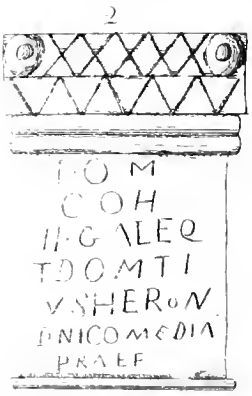 2
I O M
C O H
II G A L E Q
T D O M T I
V S H E R O N
D N I C O M E D I A
P R A E F